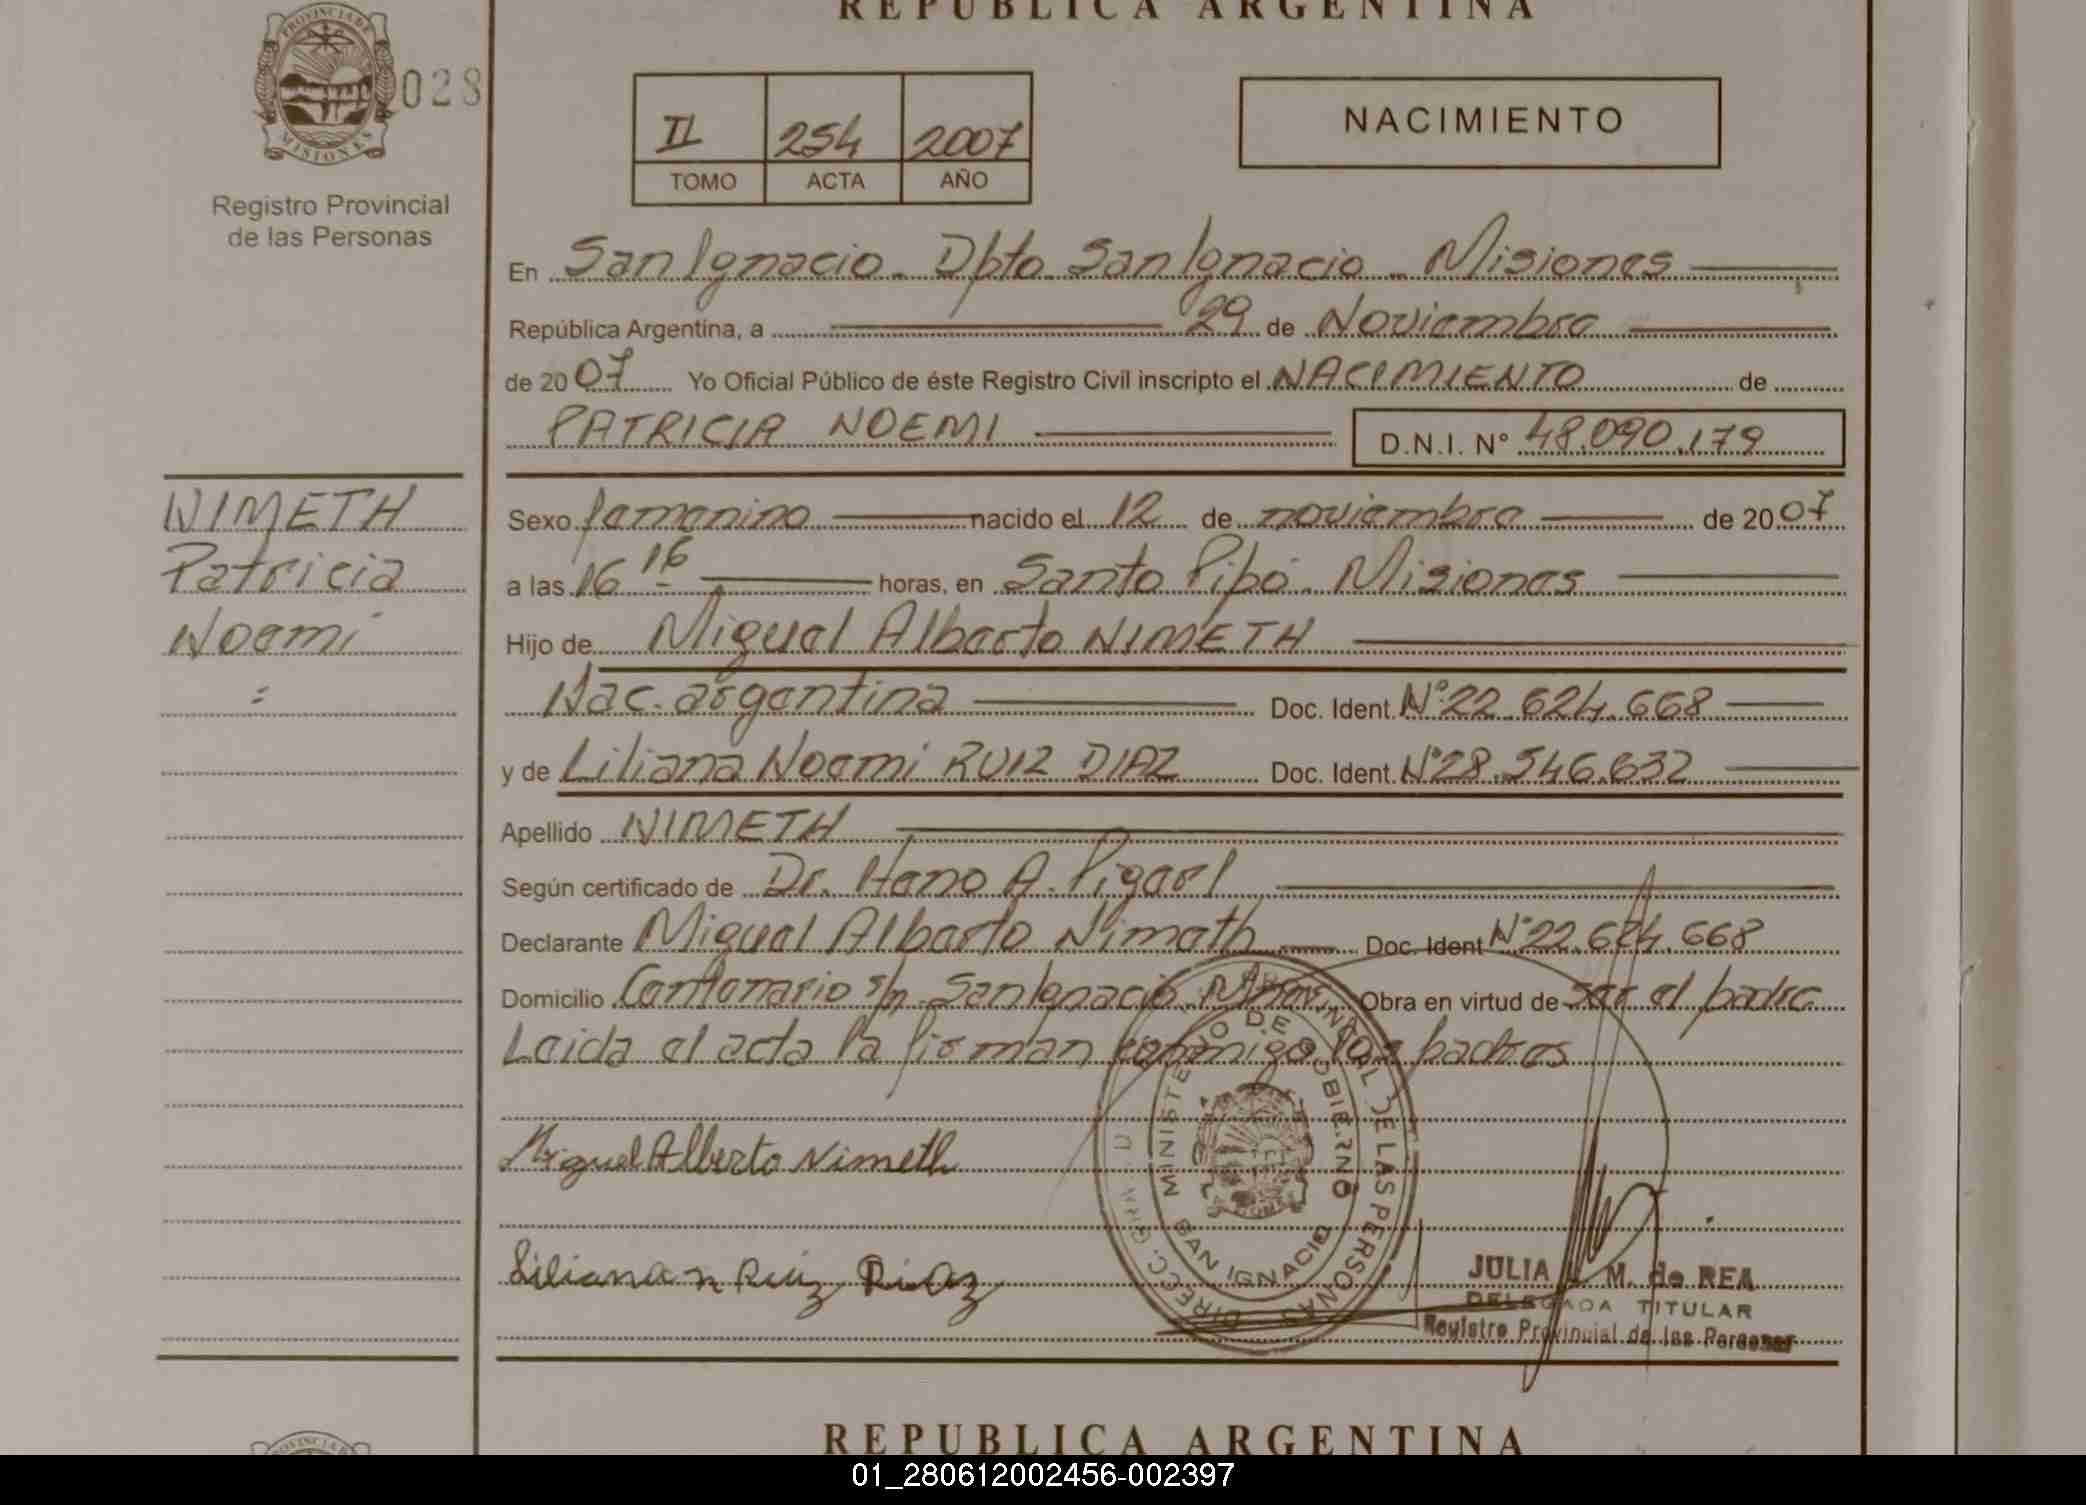 REPUBLICA ARGENTINA
PROVINCIA DE
MISIONES
028
Registro Provincial
de las Personas
II 254 2007
TOMO ACTA AÑO
NACIMIENTO
En San Ignacio - Dpto San Ignacio - Misiones
República Argentina, a 29 de Noviembre
de 2007 Yo Oficial Público de éste Registro Civil inscripto el NACIMIENTO de
PATRICIA NOEMI D.N.I. N° 48.090.179
NIMETH
Patricia
Noemi
=
Sexo femenino nacido el 12 de noviembre de 2007
a las 16 16 horas, en Santo Pipó - Misiones
Hijo de Miguel Alberto NIMETH
Nac. argentina Doc. Ident. N° 22.624.668
y de Liliana Noemi RUIZ DIAZ Doc. Ident. N° 28.546.632
Apellido NIMETH
Según certificado de Dr. Hano A.
Declarante Miguel Alberto Nimeth Doc. Ident N° 22.624.668
Domicilio Centenario s/n - San Ignacio Obra en virtud de ser el padre
Leida el acta la firman conmigo los padres
Miguel Alberto Nimeth
Liliana n Ruiz Diaz
MINISTERIO DE GOBIERNO
SAN IGNACIO
PROVINCIAL DE LAS PERSONAS
JULIA M. de REA
DELEGADA TITULAR
Registro Provincial de las Personas
REPUBLICA ARGENTINA
01_280612002456-002397